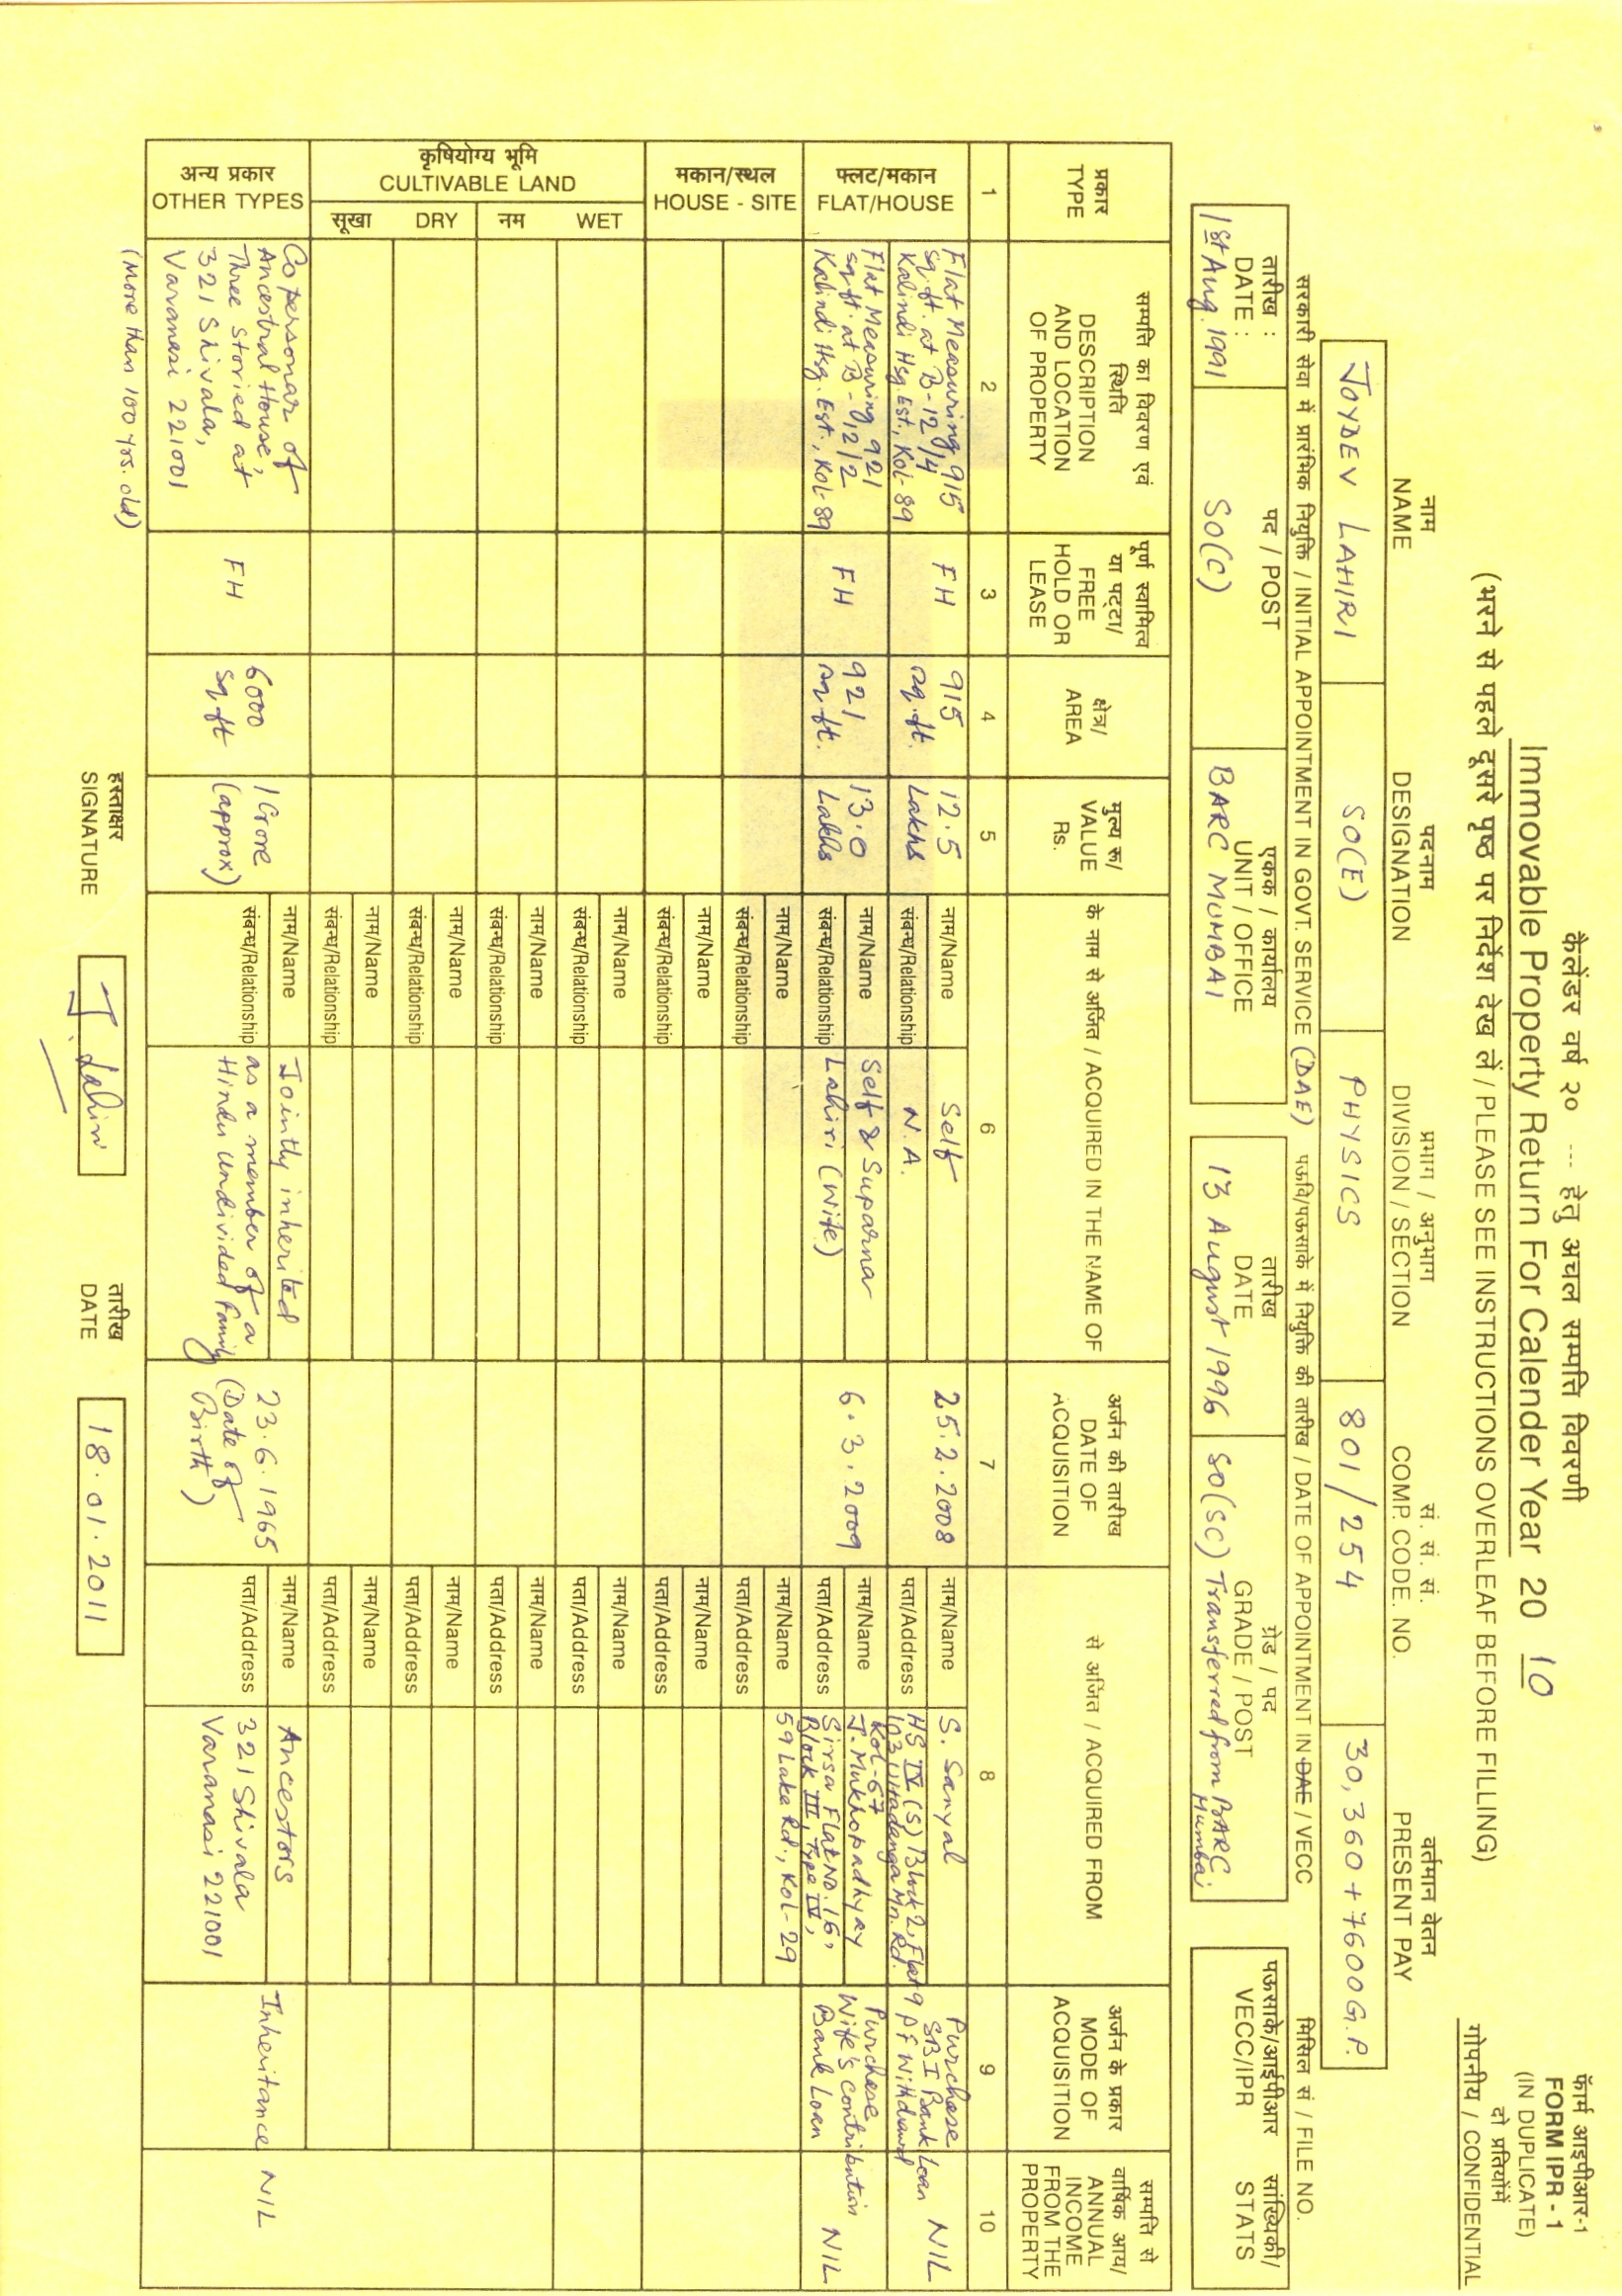 फॉर्म आइपीआर-1
FORM IPR - 1
(IN DUPLICATE)
दो प्रतियोंमें
गोपनीय / CONFIDENTIAL
कैलेंडर वर्ष २० --- हेतु अचल सम्पति विवरणी
Immovable Property Return For Calender Year 20 10
(भरने से पहले दूसरे पृष्ठ पर निर्देश देख लें / PLEASE SEE INSTRUCTIONS OVERLEAF BEFORE FILLING)
नाम पदनाम प्रभाग / अनुभाग सं. सं. सं. वर्तमान वेतन
NAME DESIGNATION DIVISION / SECTION COMP. CODE. NO. PRESENT PAY
JOYDEV LAHIRI SO(E) PHYSICS 801/254 30,360 + 7600 G.P.
सरकारी सेवा में प्रारंभिक नियुक्ति / INITIAL APPOINTMENT IN GOVT. SERVICE (DAE) पऊवि/पऊसाके में नियुक्ति की तारीख / DATE OF APPOINTMENT IN DAE / VECC मिसिल सं / FILE NO.
तारीख : पद / POST एकक / कार्यालय तारीख ग्रेड / पद पऊसाके/आईपीआर सांख्यिकी/
DATE : UNIT / OFFICE DATE GRADE / POST VECC/IPR STATS
1st Aug. 1991 SO(C) BARC MUMBAI 13 August 1996 SO(SC) Transferred from BARC,
Mumbai
प्रकार
TYPE
सम्पति का विवरण एवं
स्थिति
DESCRIPTION
AND LOCATION
OF PROPERTY
पूर्ण स्वामित्व
या पट्टा/
FREE
HOLD OR
LEASE
क्षेत्र/
AREA
मुल्य रू/
VALUE
Rs.
के नाम से अर्जित / ACQUIRED IN THE NAME OF
अर्जन की तारीख
DATE OF
ACQUISITION
से अर्जित / ACQUIRED FROM
अर्जन के प्रकार
MODE OF
ACQUISITION
सम्पति से
वार्षिक आय/
ANNUAL
INCOME
FROM THE
PROPERTY
1 2 3 4 5 6 7 8 9 10
फ्लट/मकान
FLAT/HOUSE
Flat Measuring 915
sq.ft. at B-12/4
Kalindi Hsg. Est., Kol-89
FH
915
sq.ft.
12.5
Lakhs
नाम/Name Self
संबन्ध/Relationship N.A.
25.2.2008
नाम/Name S. Sanyal
पता/Address HS IV (S) Block 2, Flat 9
103 Ultadanga Mn. Rd.
Kol-67
Purchase
SBI Bank Loan
PF Withdrawal
NIL
Flat Measuring 921
sq.ft. at B-12/2
Kalindi Hsg. Est., Kol-89
FH
921
sq.ft.
13.0
Lakhs
नाम/Name Self & Suparna
संबन्ध/Relationship Lahiri (Wife)
6.3.2009
नाम/Name J. Mukhopadhyay
पता/Address Sirsa Flat No. 16,
Block III, Type IV,
59 Lake Rd., Kol-29
Purchase
Wife's Contribution
Bank Loan
NIL
मकान/स्थल
HOUSE - SITE
नाम/Name नाम/Name
संबन्ध/Relationship पता/Address
नाम/Name नाम/Name
संबन्ध/Relationship पता/Address
कृषियोग्य भूमि
CULTIVABLE LAND
नम WET
नाम/Name नाम/Name
संबन्ध/Relationship पता/Address
नाम/Name नाम/Name
संबन्ध/Relationship पता/Address
सूखा DRY
नाम/Name नाम/Name
संबन्ध/Relationship पता/Address
नाम/Name नाम/Name
संबन्ध/Relationship पता/Address
अन्य प्रकार
OTHER TYPES
Copersonar of
Ancestral House,
Three storied at
321 Shivala,
Varanasi 221001
(More than 100 yrs. old)
FH
6000
sq ft
1 Crore
(approx)
नाम/Name
संबन्ध/Relationship
Jointly inherited
as a member of a
Hindu Undivided Family
23.6.1965
(Date of
Birth)
नाम/Name Ancestors
पता/Address 321 Shivala
Varanasi 221001
Inheritance
NIL
हस्ताक्षर
SIGNATURE
J. Lahiri
तारीख
DATE
18.01.2011